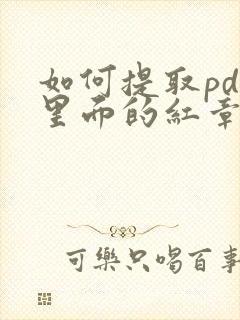 如何提取pd
里面的红章
可樂只喝百事